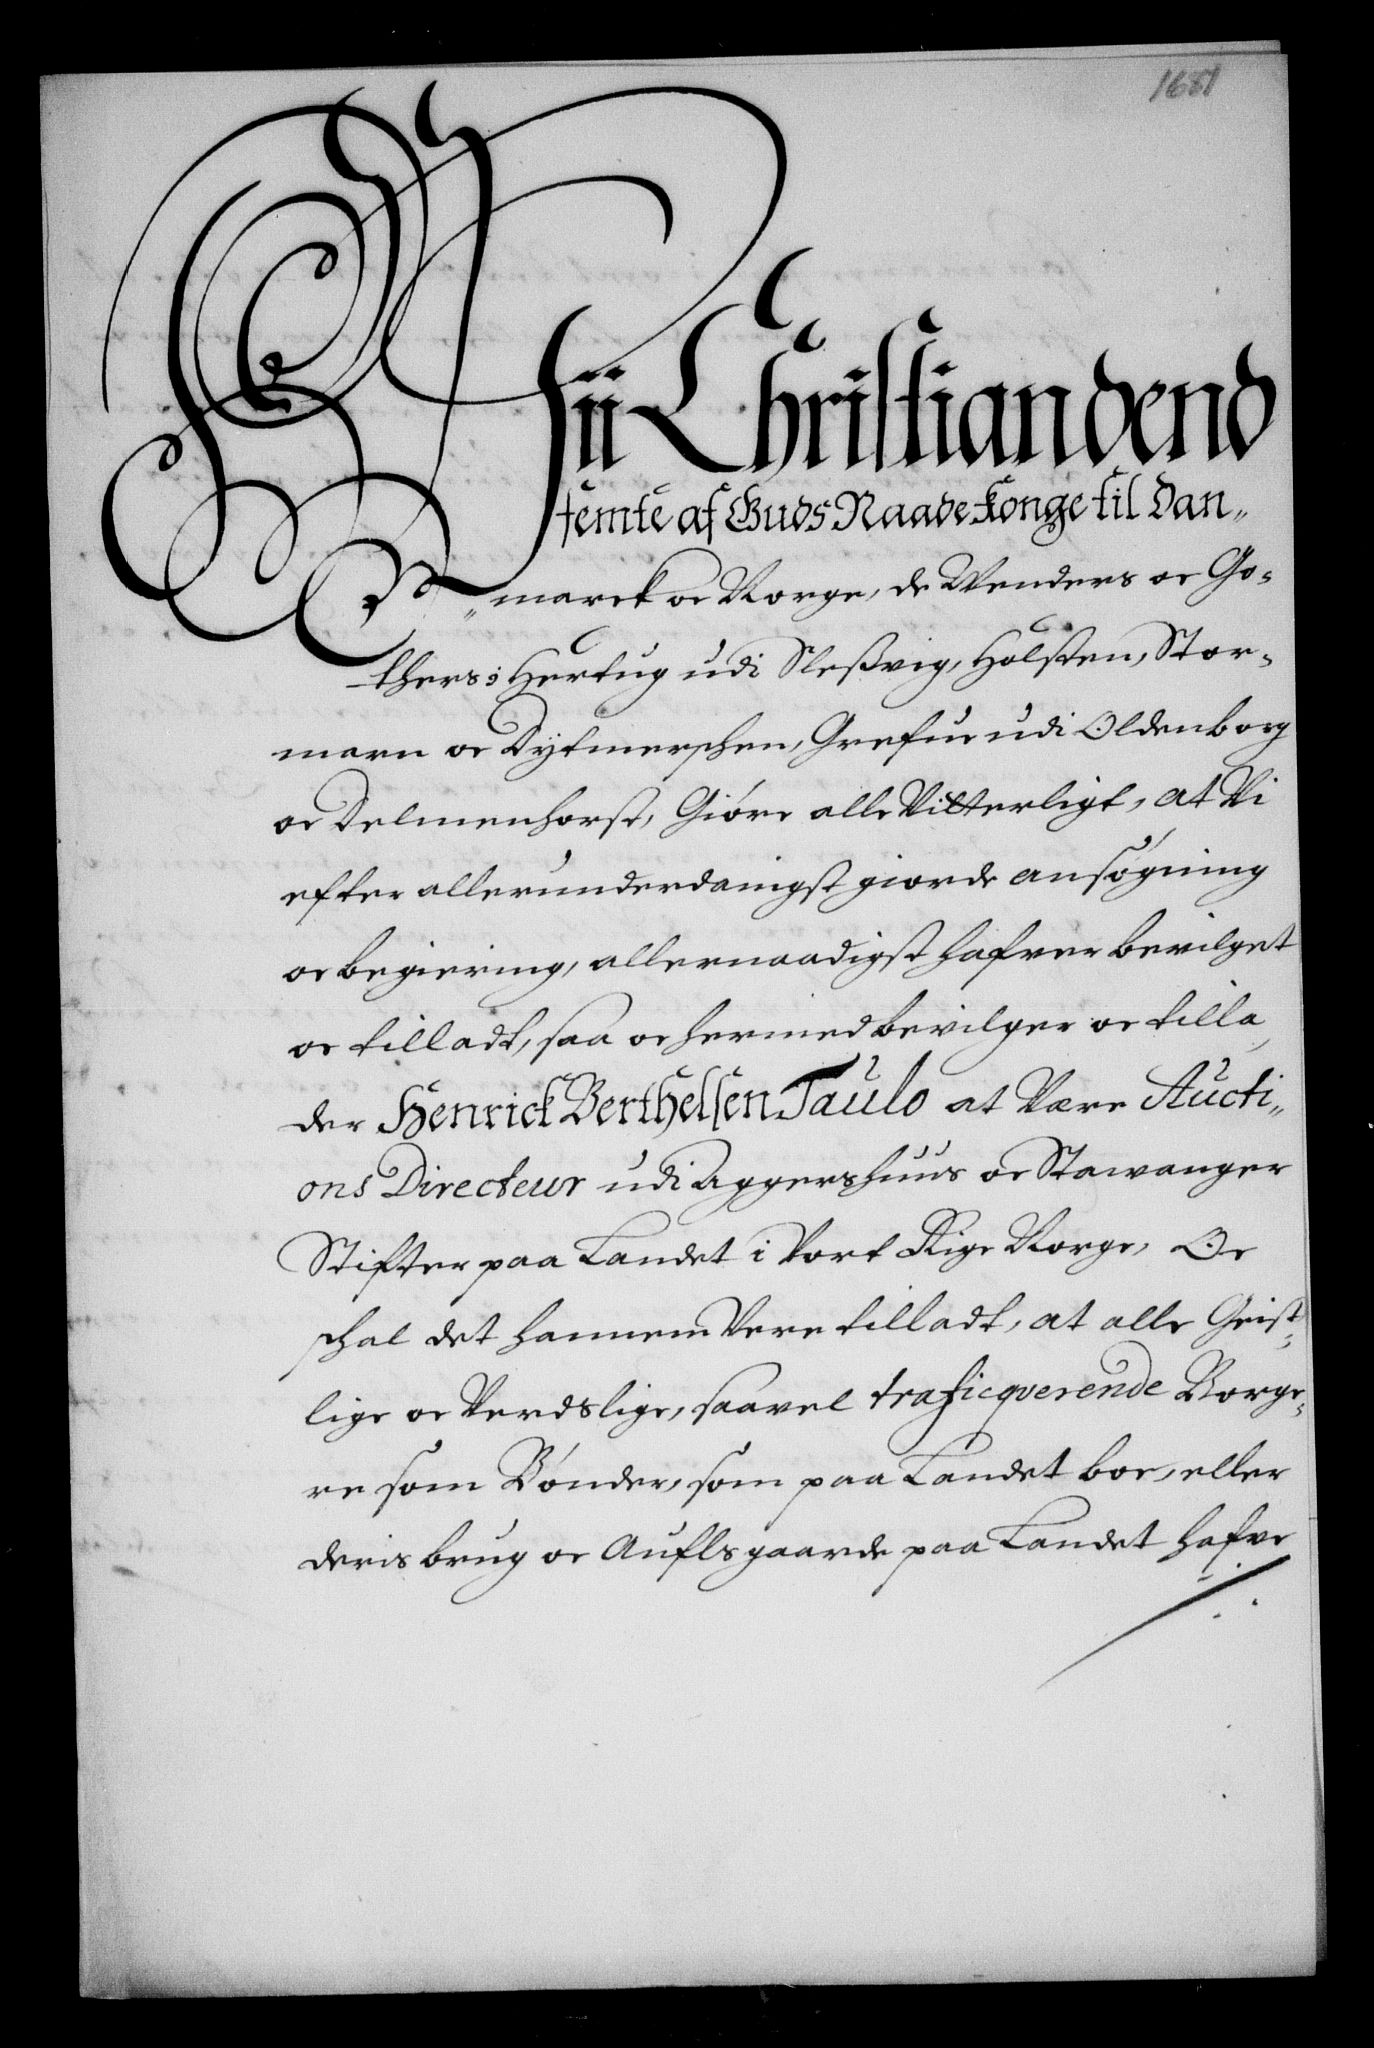 1681
Wii Christian dend
femte af Guds Naade Konge til Dan„
„marck oc Norge, de Wenders oc Go-
thers; Hertug udi Sleßvig, Holsten, Stor-
marn oc Dytmerschen, Grefue udi Oldenborg
oc Delmenhorst, Giöre alle Vitterligt, at Vi
efter allerunderdanigst giorde ansøgning
oc begiering, allernaadigst hafver bevilget
oc tilladt, saa oc hermed bevilger oc tilla„
der Henrick Berthelsen Taulo at Være Aucti„
ons Directeur udi Aggershuus oc Stawanger
Stifter paa Landet i Vort Rige Norge, Oc
schal det hannem Vere tilladt, at alle Geist„
lige oc Verdslige, saavel traficqverende Borge„
re som Bönder, som paa Landet boe, eller
deris brug oc Auflsgaarde paa Landet hafve